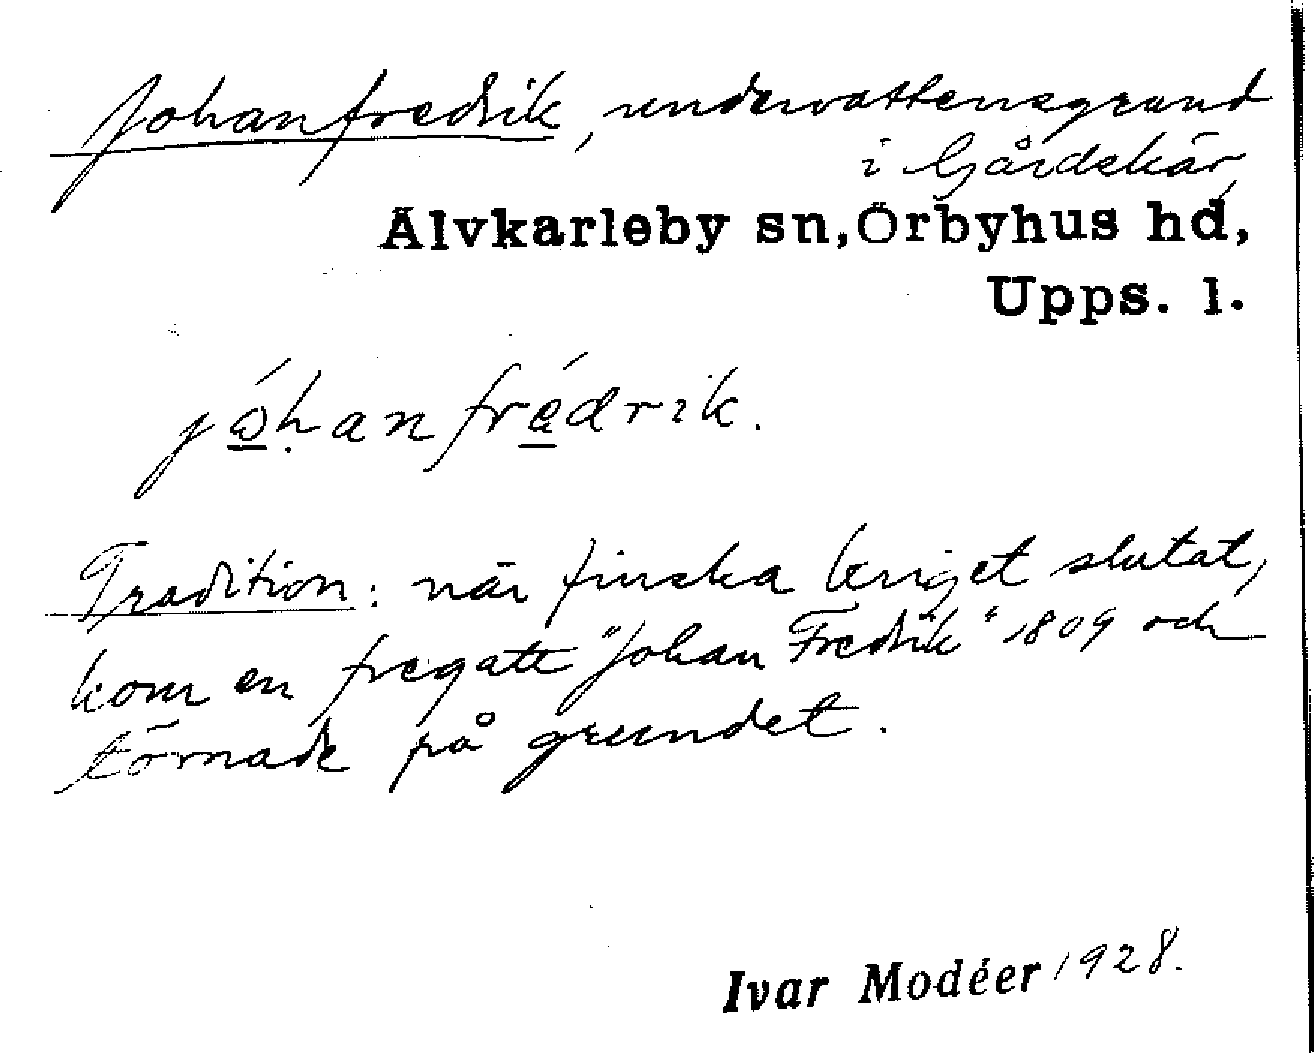 Johanfredrik, undervattensgrund
i Gårdskär,
Älvkarleby sn, Örbyhus hd,
Upps. l.
jóhanfrédrik.
Tradition: när finska kriget slutat,
kom en fregatt "Johan Fredrik" 1809 och
törnade på grundet.
Ivar Modéer 1928.